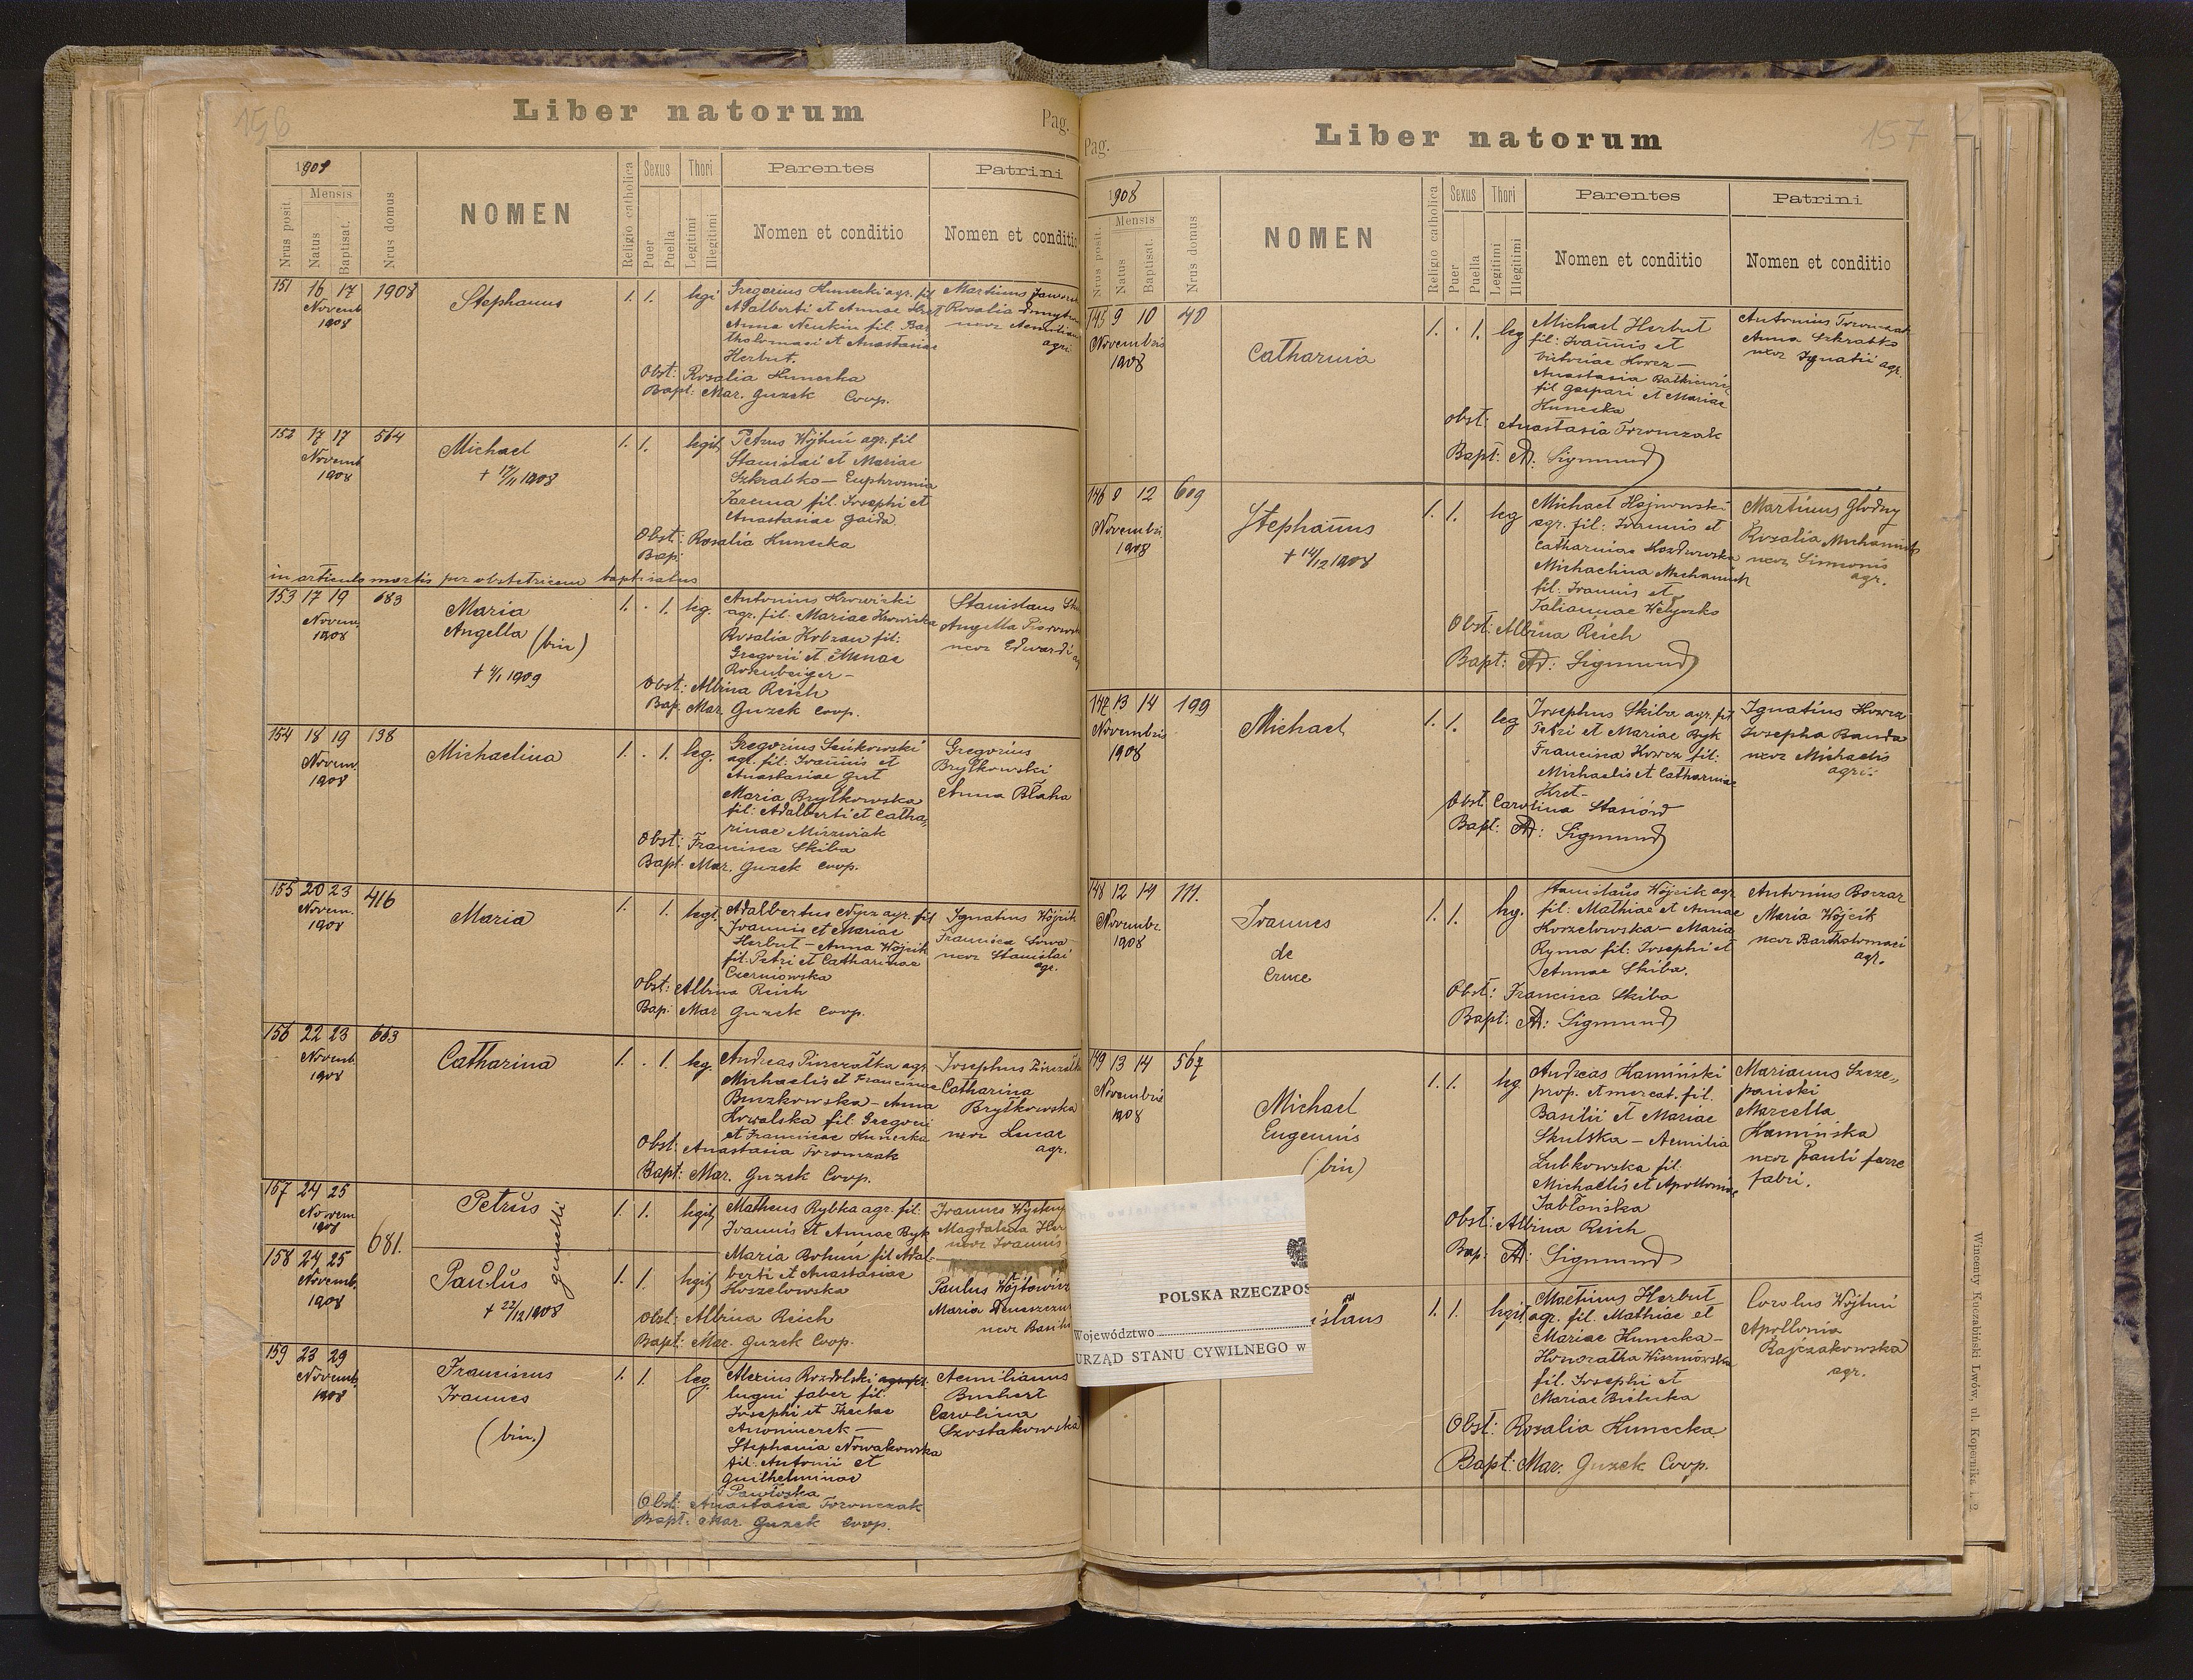 156
Liber natorum
Pag.
1908
Nrus posit.
Mensis
Natus
Baptisat.
Nrus domus
NOMEN
Religio catholica
Sexus
Puer
Puella
Thori
Legitimi
Illegitimi
Parentes
Nomen et conditio
Patrini
Nomen et conditio
151 16 17 1908
Novemb
1908
Stephanus
1. 1. legi
Gregorius Kunecki agr. fil
Adalberti et Annae Hret
Anna Neukin fil. Bar
tholomaei et Anastasiae
Herbut.
Martinus
Rosalia
uxor
agri
Obst: Rosalia Kunecka
Bapt: Mar. Guzek Coop.
152 17 17 564
Novemb
1908
Michael
+ 17/11 1908
1. 1. legit
Petrus Wójtuń agr. fil
Stanislai et Mariae
Szkrabko – Euphrosnia
Jarema fil. Josephi et
Anastasiae Gaida
Obst: Rosalia Kunecka
Bap:
in articulo mortis per obstetricem baptisatus
153 17 19 683
Novem.
1908
Maria
Angella (bin)
+ 4/1 1909
1. . 1. leg.
Antonius Krowicki
agr. fil: Mariae Krowicka
Rosalia Kobzan fil:
Gregorii et Annae
Rosenbeiger –
Stanislaus
Angella
uxor Edwardi
Obst: Albina Reich
Bap. Mar. Guzek Coop.
154 18 19 138
Novem.
1908
Michaelina
1. . 1. leg.
Gregorius Seńkowski
agr. fil: Joannis et
Anastasiae Gut
Maria Bryłkowska
fil: Adalberti et Catha„
rinae Mizzwiak
Gregorius
Bryłkowski
Anna Błaha
Obst: Francisca Skiba
Bapt: Mar. Guzek Coop.
155 20 23 416
Novem.
1908
Maria
1. 1. legt.
Adalbertus agr. fil
Joannis et Mariae
Herbut – Anna Wójcik
fil: Petri et Catharinae
Czerniowska
Ignatius Wójcik
Francisca Sowa
uxor Stanislai
agr.
Obst: Albina Reich
Bap: Mar Guzek Coop.
156 22 23 663
Novemb.
1908
Catharina
1. . 1. leg.
Andreas Pinczałka agr.
Michaelis et Franciscae
Buczkowska – Anna
Kowalska fil. Gregorii
et Franciscae Kunecka
Josephus
Catharina
Bryłkowska
uxor Lucae
agr.
Obst: Anastasia Toronczak
Bapt: Mar. Guzek Coop.
157 24 25
Novem
1908
681.
Petrus
gemelli
1. 1. legit
Matheus Rybka agr. fil.
Joannis et Annae Byk
Maria Bohuń fil Adal-
berti et Anastasiae
Koszelowska
Joannes
Magdalena Her
uxor Joannis
158 24 25
Novemb.
1908
Paulus
+ 22/12 1908
1. 1. legit
Paulus Wójtowicz
Maria
uxor Basilii
Obst: Albina Reich
Bapt: Mar. Guzek Coop.
159 23 29
Novemb.
1908
Franciscus
Joannes
(bin.)
1. 1. leg.
Alexius Rozdolski
lugni faber fil:
Josephi et Theclae
Stephania Nowakowska
fil: Antonii et
Guilhelminae
Pawłoska
Aemilianus
Buchert
Carolina
Szostakowska
Obst: Anastasia Toronczak
Bapt: Mar Guzek Coop.
157
Pag.
Liber natorum
1908
Nrus posit.
Mensis
Natus
Baptisat.
Nrus domus
NOMEN
Religio catholica
Sexus
Puer
Puella
Thori
Legitimi
Illegitimi
Parentes
Nomen et conditio
Patrini
Nomen et conditio
145 9 10 40
Novembris
1908
Catharina
1. . 1. leg
Michael Herbut
fil: Joannis et
Victoriae Kowcz –
Anastasia Ratkiewicz
fil Gaspari et Mariae
Kunecka
Antonius Toronczak
Anna Szkrabko
uxor Ignatii agr.
Obst: Anastasia Toronczak
Bapt: A: Sigmund
146 8 12 609
Novembris
1908
Stephanus
+ 14/12 1908
1. 1. leg
Michael Hajnowski
agr. fil: Joannis et
Catharinae Kozdrowska
Michaelina Muchanich
fil: Joannis et
Tatiannae Wełyczko
Martinus Głodny
Rozalia
uxor Simeonis
agr.
Obst: Albina Reich
Bapt: A: Sigmund
147 13 14 199
Novembris
1908
Michael
1. 1. leg
Josephus Skiba agr. fil
Petri et Mariae Byk
Francisca Kowcz fil:
Michaelis et Catharinae
Hret –
Ignatius Kowcz
Josepha Banda
uxor Michaelis
agri.
Obst: Carolina Stasiów
Bapt: A: Sigmund
148 12 14 111.
Novembr.
1908
Joannes
de
Cruce
1. 1. leg.
Stanislaus Wójcik agr
fil: Mathiae et Annae
Korzelowska – Maria
Ryma fil: Josephi et
Annae Skiba.
Antonius Boczar
Maria Wójcik
uxor Bartholomaei
agr.
Obst: Francisca Skiba
Bapt: A: Sigmund
149 13 14 567
Novembris
1908
Michael
Eugenius
(bin)
1. 1. leg
Andreas Kamiński
prop. et mercat. fil.
Basilii et Mariae
Skulska – Aemilia
Lubkowska fil.
Michaelis et Apolloniae
Jabłońska
Marianus Szcze„
pański
Marcella
Kamińska
uxor Pauli ferre
fabri.
Obst: Albina Reich
Bap: A: Sigmund
POLSKA RZECZPOS
Województwo
URZĄD STANU CYWILNEGO w
islaus
1. 1. legit
Martinus Herbut
agr. fil. Mathiae et
Mariae Kunecka –
Honoratha Wiszniowska
fil. Josephi et
Mariae Bielecka
Carolus Wójtuń
Apollonia
Rajczakowska
agr.
Obst: Rozalia Kunecka
Bapt: Mar. Guzek Coop.
Wincenty Kuczabiński Lwów, ul. Kopernika l. 2